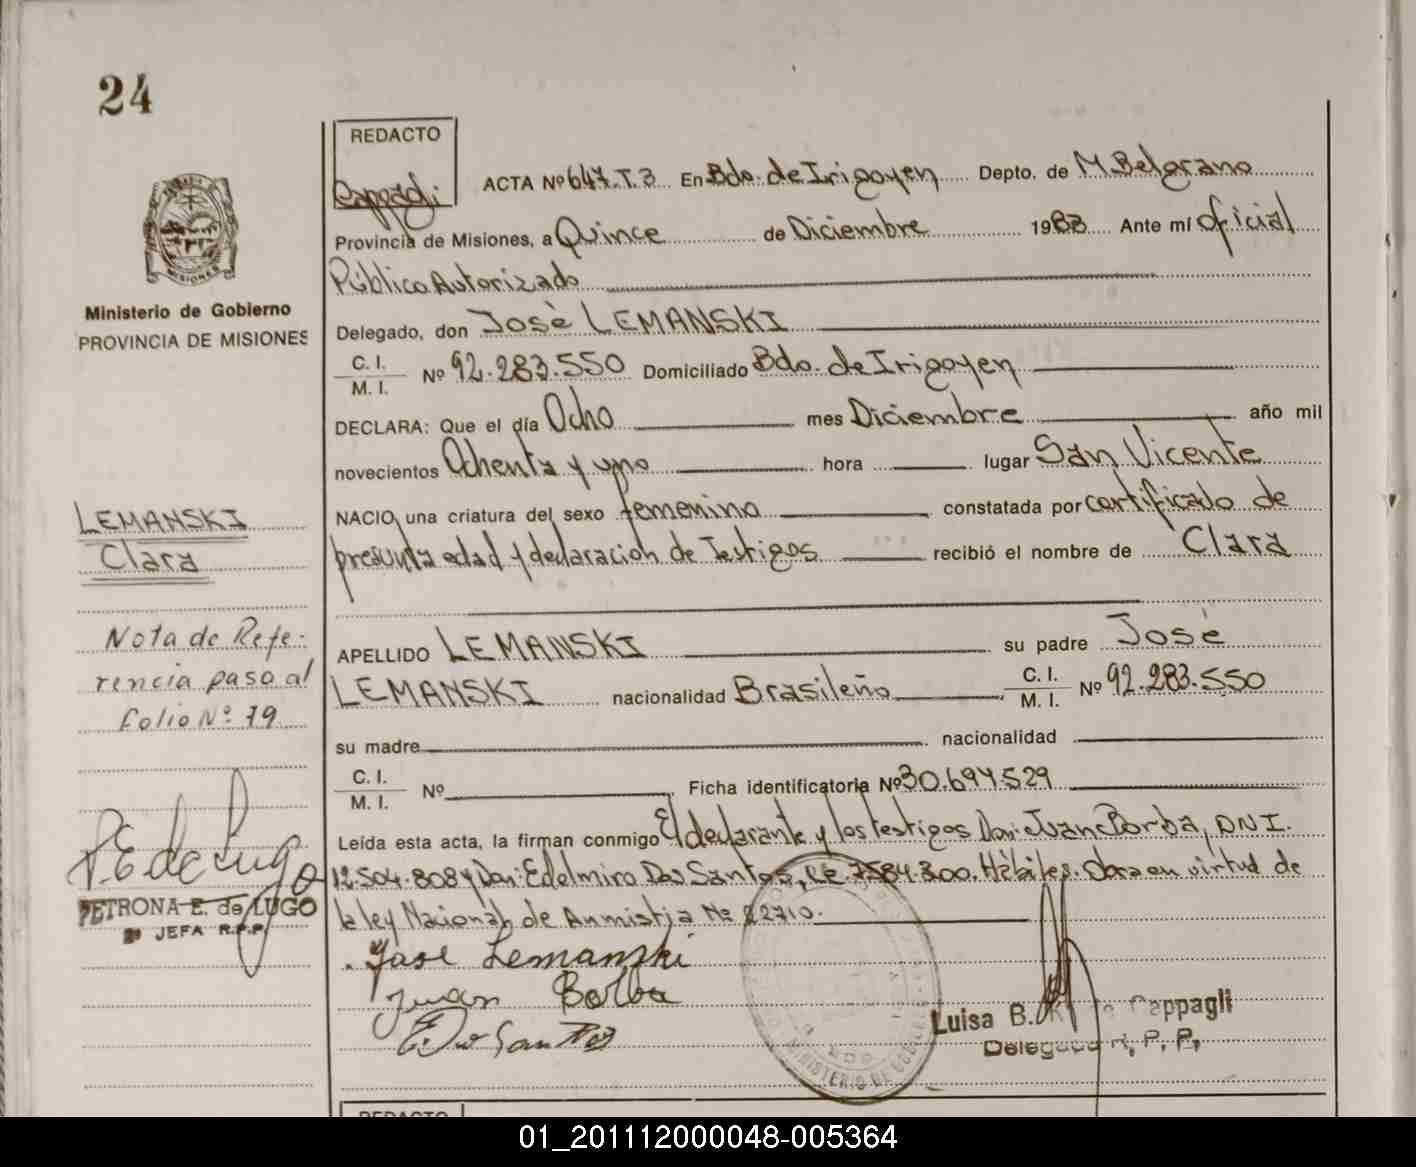 24
REDACTO
Cappagli
ACTA Nº 647.T.3 En Bdo. de Irigoyen Depto. de M. Belgrano
Provincia de Misiones, a Quince de Diciembre 1983 Ante mí Oficial
Público Autorizado
Delegado, don Josè LEMANSKI
C. I.
M. I. Nº 92.283.550 Domiciliado Bdo. de Irigoyen
DECLARA: Que el día Ocho mes Diciembre año mil
novecientos Ochenta y uno hora lugar San Vicente
NACIO, una criatura del sexo femenino constatada por certificado de
presunta edad y declaracion de Testigos recibió el nombre de Clara
APELLIDO LEMANSKI su padre Josè
LEMANSKI nacionalidad Brasileño C. I.
M. I. Nº 92.283.550
su madre nacionalidad
C. I.
M. I. Nº Ficha identificatoria Nº 30.694.529
Leída esta acta, la firman conmigo El declarante y los testigos Don: Juan Borba, DNI.
12.504.808 y Don: Edelmiro Dos Santos, L.E. 7584.300. Hàbiles. en virtud de
la ley Nacional de Anmistia Nº 22710.
Jose Lemanski
Juan Borba
E. Dos Santos
Luisa B. Cappagli
Delegada R. P. P.
MINISTERIO DE GOBIERNO
MISIONES
Ministerio de Gobierno
PROVINCIA DE MISIONES
LEMANSKI
Clara
Nota de Refe-
rencia paso al
folio Nº 79
P E de Lugo
PETRONA E. de LUGO
JEFA R.P.P.
REDACTO
01_201112000048-005364